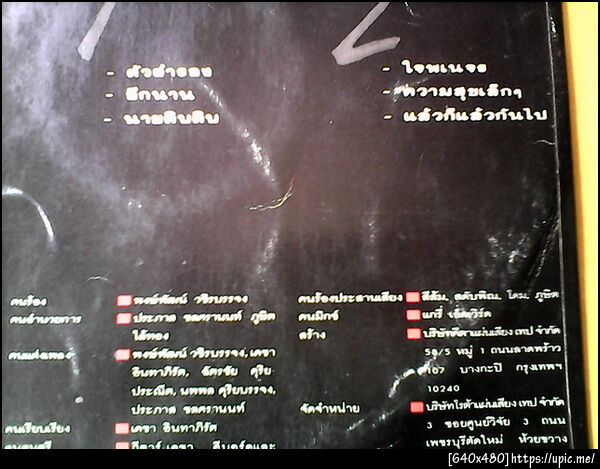 1
2
- ตัวสำรอง
- อีกนาน
- นายดิบดิบ
- ใจพเนจร
- ความสุขเล็กๆ
- แล้วก็แล้วกันไป
คนร้อง พงษ์พัฒน์ วชิรบรรจง
คนอำนวยการ ประภาส ชลศรานนท์ ภูษิต ไล้ทอง
คนแต่งเพลง พงษ์พัฒน์ วชิรบรรจง, เดชา
อินทาภิรัต, ฉัตรชัย ดุริย-
ประณีต, นพพล ดุริยบรรจง,
ประภาส ชลศรานนท์
คนเรียบเรียง เดชา อินทาภิรัต
คนดนตรี กีตาร์ เดชา คีบอร์ดและ
คนร้องประสานเสียง สีส้ม, ดลพิณ, โดม, ภูษิต
คนมิกซ์ แกรี่ เอ็ดเวิร์ด
สร้าง บริษัทคีตาแผ่นเสียงเทป จำกัด
58/5 หมู่ 1 ถนนลาดพร้าว
107 บางกะปิ กรุงเทพฯ
10240
จัดจำหน่าย บริษัทโรต้าแผ่นเสียงเทป จำกัด
3 ซอยศูนย์วิจัย 3 ถนน
เพชรบุรีตัดใหม่ ห้วยขวาง
[640x480]https://upic.me/